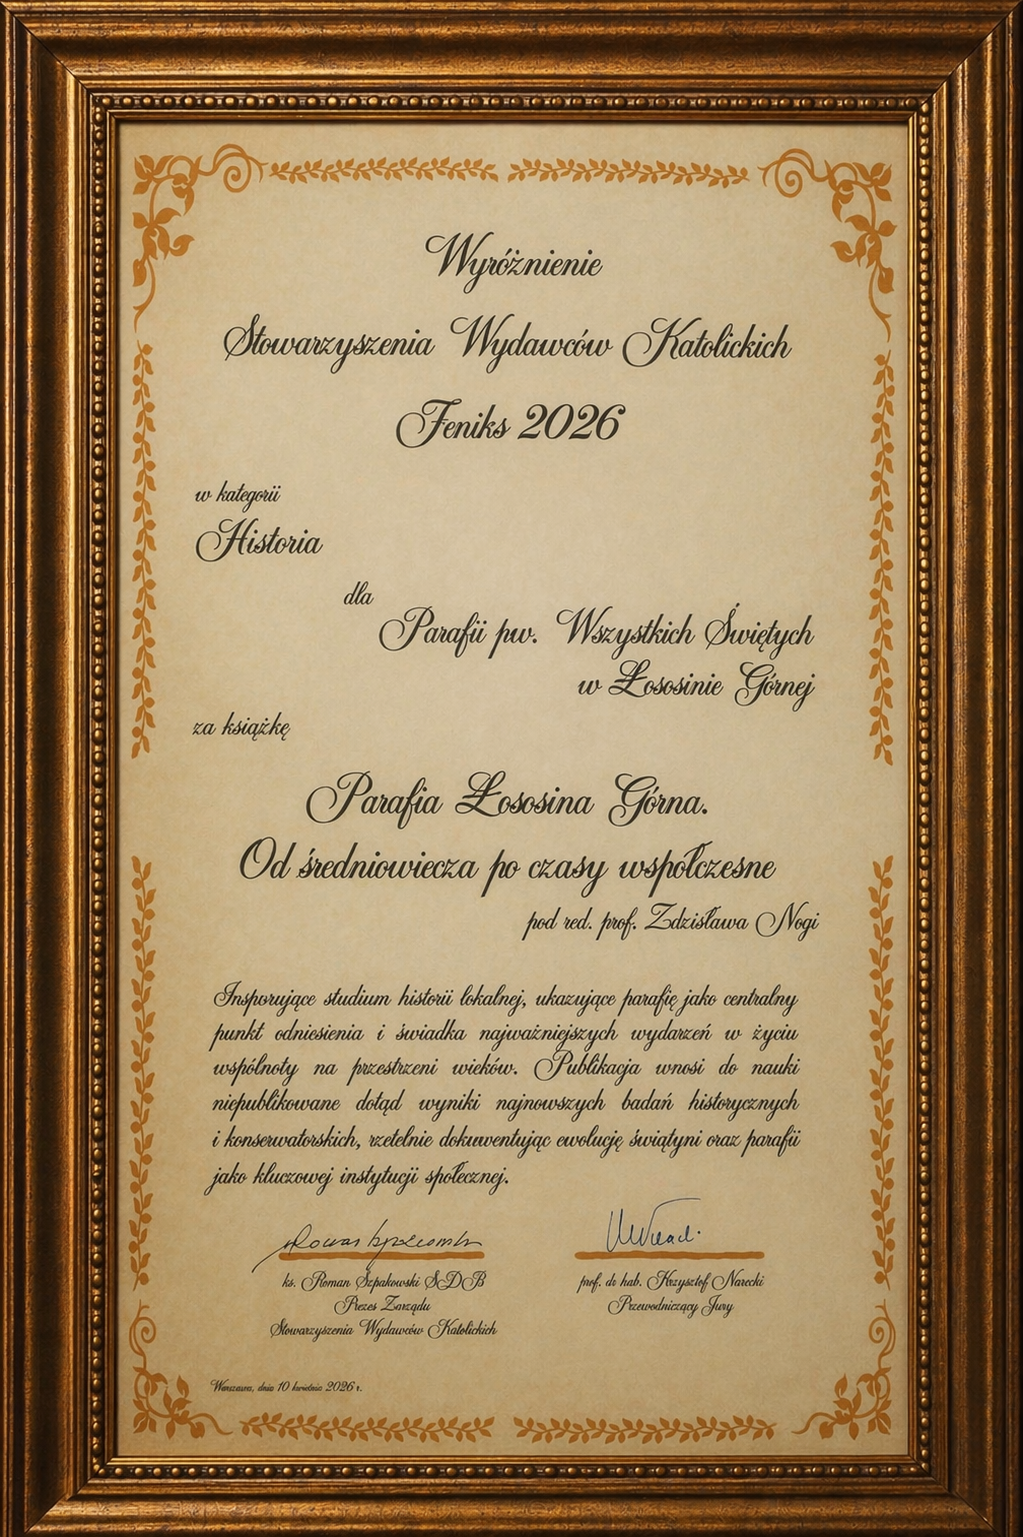 Wyróżnienie
Stowarzyszenia Wydawców Katolickich
Feniks 2026
w kategorii
Historia
dla
Parafii pw. Wszystkich Świętych
w Łososinie Górnej
za książkę
Parafia Łososina Górna.
Od średniowiecza po czasy współczesne
pod red. prof. Zdzisława Nogi
Inspirujące studium historii lokalnej, ukazujące parafię jako centralny
punkt odniesienia i świadka najważniejszych wydarzeń w życiu
wspólnoty na przestrzeni wieków. Publikacja wnosi do nauki
niepublikowane dotąd wyniki najnowszych badań historycznych
i konserwatorskich, rzetelnie dokumentując ewolucję świątyni oraz parafii
jako kluczowej instytucji społecznej.
ks. Roman Szpakowski SDB
Prezes Zarządu
Stowarzyszenia Wydawców Katolickich
prof. dr hab. Krzysztof Narecki
Przewodniczący Jury
Warszawa, dnia 10 kwietnia 2026 r.